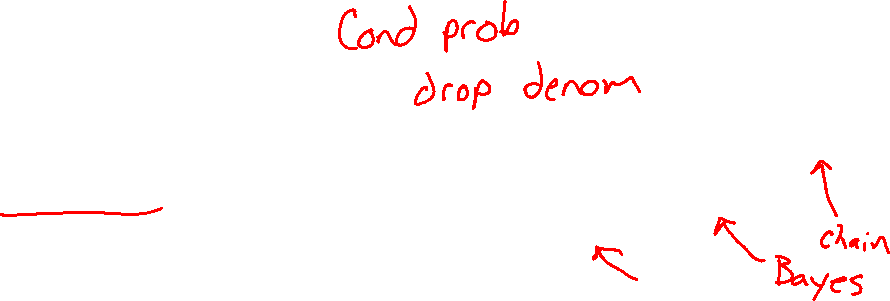 Cond prob
drop denom
chain
Bayes